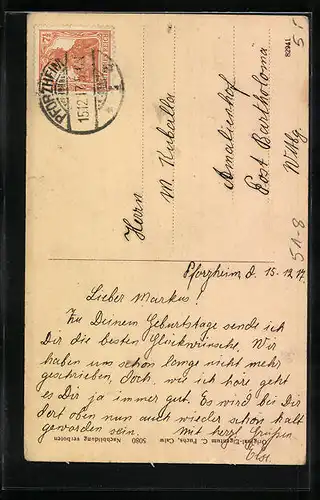 PFORZHEIM
15.12.17
7½
8294
5
Herrn
M. Kubella
Amalienhof
Post Bartholomä
Wttbg.
51-8
Pforzheim, d. 15.12.17.
Lieber Markus!
Zu Deinem Geburtstage sende ich
Dir die besten Glückwünsche. Wir
haben uns schon lange nicht mehr
geschrieben, doch, wie ich höre, geht
es Dir ja immer gut. Es wird bei Dir
dort oben nun auch wieder schön kalt
geworden sein. Mit herzl. Grüßen
Else.
Original-Eigentum C. Fuchs, Calw 5080 Nachbildung verboten